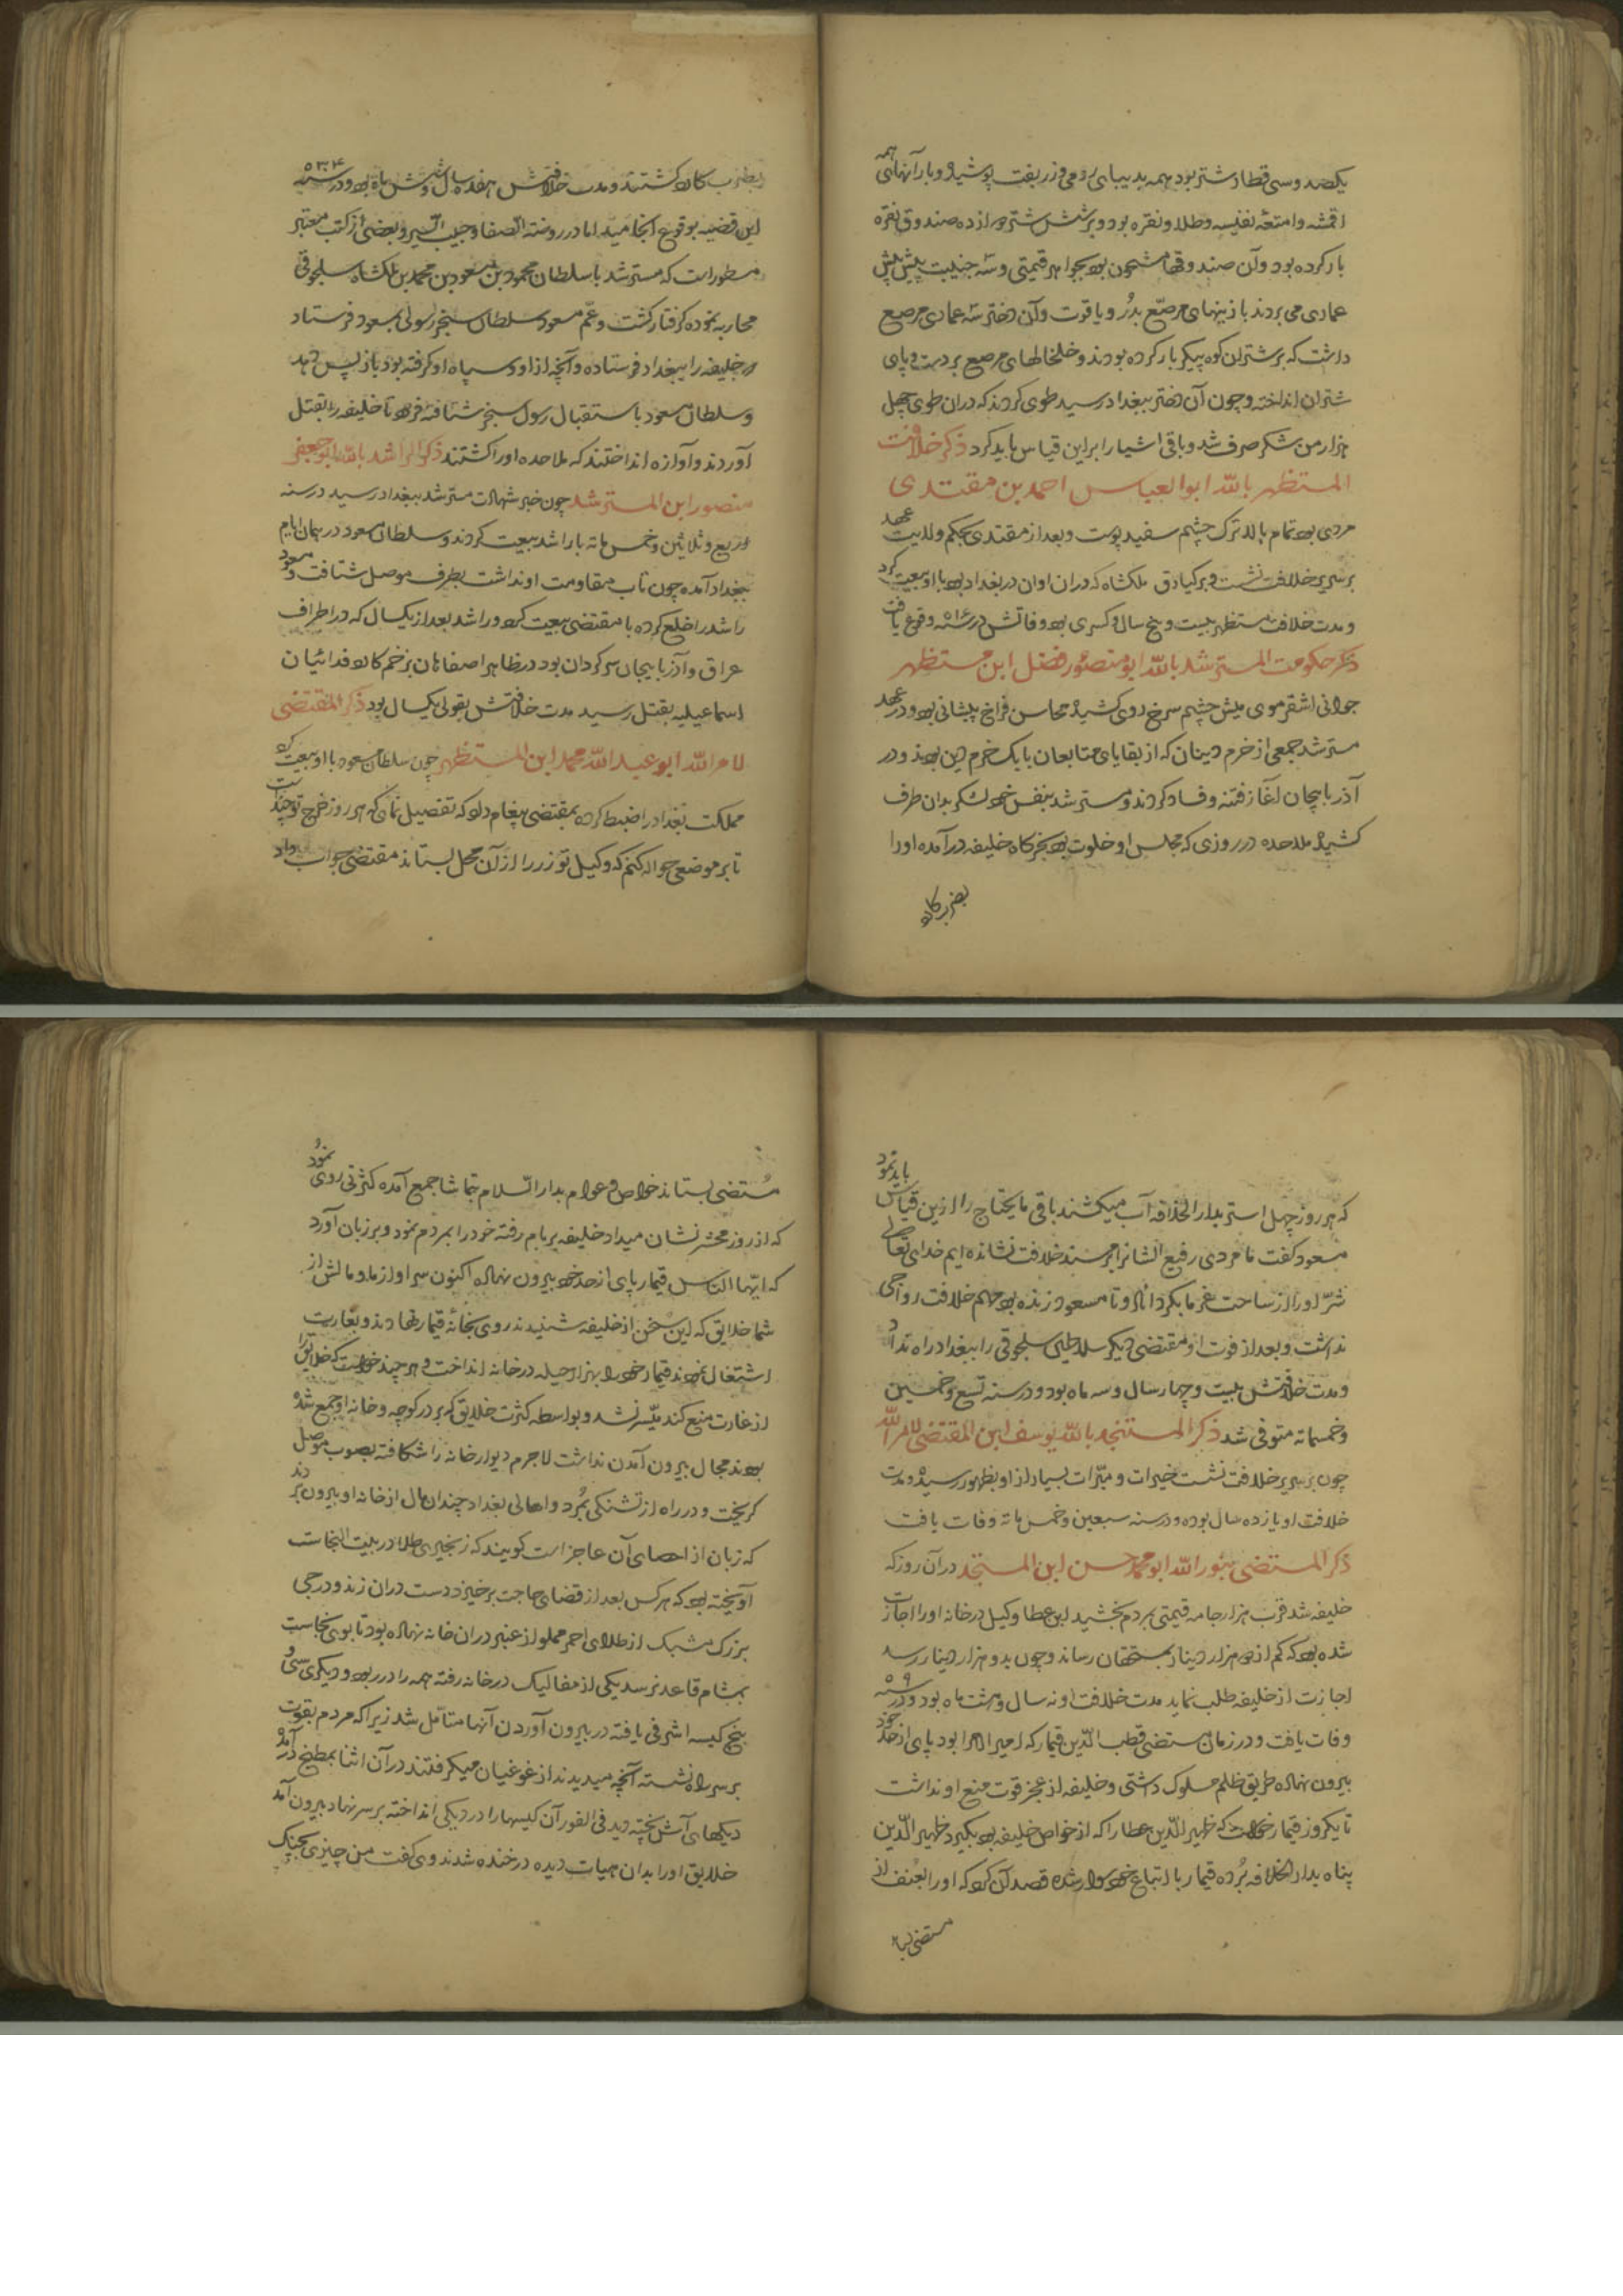 یکصد و سی قطار شتر بود همه بدیبای رومی و زربفت پوشیده و بار آنها همه
اقمشه و امتعه نفیسه و طلا و نقره بود و بر شش شتر دوازده صندوق نقره
بار کرده بود و آن صندوقها مشحون بود بجواهر قیمتی و سه جنیبت پیش پیش
عماری می بردند با زینهای مرصّع بدُرّ و یاقوت و آن دختر سه عماری مرصع
داشت که بر شتران کوه پیکر بار کرده بودند و خلخالهای مرصع بر دست و پای
شتران انداخته و چون آن دختر ببغداد رسید طوی کردند که دران طوی چهل
هزار من شکر صرف شد و باقی اشیا را براین قیاس باید کرد ذکر خلافت
المستظهر بالله ابو العباس احمد بن مقتدی
مردی بود تمام بالا ترک چشم سفید پوست و بعد از مقتدی بحکم ولایت عهد
بر سریر خلافت نشست و برکیارق ملکشاه که دران اوان در بغداد بود با او بیعت کرد
و مدت خلافت مستظهر بیست و پنج سال و کسری بود وفاتش در سنه ۵۱۲ وقوع یافت
ذکر حکومت المسترشد بالله ابو منصور فضل ابن مستظهر
جوانی اشقر موی میش چشم سرخ روی کشیده محاسن فراخ پیشانی بود و در عهد
مسترشد جمعی از خرم دینان که از بقایای متابعان بابک خرم دین بودند و در
آذربایجان آغاز فتنه و فساد کردند و مسترشد بنفس خود لشکر بدان طرف
کشیده ملاحده در روزی که مجلس او خلوت بود بخرگاه خلیفه درآمده او را
بضرب کارد
بضرب کارد کشتند و مدت خلافتش هفده سال و شش ماه بود و در سنه ۵۳۴
این قضیه بوقوع انجامید اما در روضة الصفا و حبیب السیر و بعضی از کتب معتبر
مسطور است که مسترشد با سلطان محمود بن مسعود بن محمد بن ملکشاه سلجوقی
محاربه نموده گرفتار گشت و عم مسعود سلطان سنجر رسولی بمسعود فرستاد
که خلیفه را ببغداد فرستاده و آنچه از او و سپاه او گرفته بود باز پس دهد
و سلطان مسعود باستقبال رسول سنجر شتافته فرمود تا خلیفه را بقتل
آوردند و آوازه انداختند که ملاحده او را کشتند ذکر الراشد بالله ابو جعفر
منصور ابن المسترشد چون خبر شهادت مسترشد ببغداد رسید در سنه
اربع و ثلاثین و خمس مائه با راشد بیعت کردند و سلطان مسعود در همان ایام
ببغداد آمده چون تاب مقاومت او نداشت بطرف موصل شتافت و مسعود
راشد را خلع کرده با مقتضی بیعت کرد و راشد بعد از یکسال که در اطراف
عراق و آذربایجان سرگردان بود در ظاهر اصفاهان بزخم کارد فدائیان
اسماعیلیه بقتل رسید مدت خلافتش بقولی یکسال بود ذکر المقتضی
لامر الله ابو عبد الله محمد ابن المستظهر چون سلطان مسعود با او بیعت کرد
مملکت بغداد را ضبط کرده بمقتضی پیغام داد که تفصیل نمای که هر روز خرج تو چند است
تا بر موضعی حواله کنم که وکیل تو زر را از آن محل بستاند مقتضی جواب داد
که هر روز چهل استر بدار الخلافه آب میکشند باقی مایحتاج را ازین قیاس باید نمود
مسعود گفت ما مردی رفیع الشان را بر مسند خلافت نشانده ایم خدای تعالی
شرّ او را از ساحت عز ما بگرداناد و تا مسعود زنده بود مهم خلافت رواجی
نداشت و بعد از فوت او مقتضی دیگر سلاطین سلجوقی را ببغداد راه نداد
و مدت خلافتش بیست و چهار سال و سه ماه بود و در سنه تسع و خمسین
و خمسمائه متوفی شد ذکر المستنجد بالله یوسف ابن المقتضی لامر الله
چون بر سریر خلافت نشست خیرات و مبرّات بسیار از او بظهور رسیده و مدت
خلافت او یازده سال بوده و در سنه سبعین و خمس مائه وفات یافت
ذکر المستضی بنور الله ابو محمد حسن ابن المستنجد در آن روز که
خلیفه شد قرب هزار جامه قیمتی بمردم بخشید ابن عطا وکیل در خانه او را اجازت
شده بود که کم از دو هزار دینار بمستحقان رساند و چون بدو هزار دینار رسد
اجازت از خلیفه طلب نماید مدت خلافت او نه سال و هشت ماه بود و در سنه
وفات یافت و در زمان مستضی قطب الدّین قیمار که امیر الامرا بود پای از حد خود
بیرون نهاده طریق ظلم مسلوک داشتی و خلیفه از عجز قوت منع او نداشت
تا یکروز قیمار خواست که ظهیر الدّین عطار را که از خواص خلیفه بود بگیرد ظهیر الدّین
پناه بدار الخلافه بُرده قیمار با اتباع خود سوار شده قصد آن کرد که او را بعُنف از
مستضی بستا
مُستضی بستاند خواص و عوام بدار السّلام بتماشا جمع آمده کثرتی روی نمود
که از روز محشر نشان میداد خلیفه بر بام رفته خود را بمردم نمود و بر زبان آورد
که ایّها الناس قیمار پای از حد خود بیرون نهاده اکنون سر او از ما و مالش از
شما خلایق که این سخن از خلیفه شنیدند روی بخانهٔ قیمار نهادند و بغارت
اشتغال نمودند قیمار خود را بهزار حیله در خانه انداخت و هر چند خواست که خلایق را
از غارت منع کند میسّر نشد و بواسطه کثرت خلایق که بر در کوچه و خانه او جمع شده
بودند مجال بیرون آمدن نداشت لاجرم دیوار خانه را شکافته بصوب موصل
گریخت و در راه از تشنگی بمُرد و اهالی بغداد چندان مال از خانه او بیرون بردند
که زبان از احصای آن عاجز است گویند که زنجیری طلا در بیت النجاست
آویخته بود که هر کس بعد از قضای حاجت برخیزد دست دران زند و درجی
بزرگ مشبک از طلای احمر مملو از عنبر دران خانه نهاده بود تا بوی نجاست
بمشام قاعد نرسد یکی از مفالیک در خانه رفته همه را در ربود و دیگری سی و
پنج کیسه اشرفی یافته در بیرون آوردن آنها متامّل شد زیرا که مردم بقوت
بر سر راه نشسته آنچه میدیدند از غوغیان میگرفتند در آن اثنا بمطبخ درآمد
دیگهای آش پخته دید فی الفور آن کیسها را در دیگی انداخته بر سر نهاد بیرون آمد
خلایق او را بدان هیات دیده در خنده شدند وی گفت من چیزی بجهت